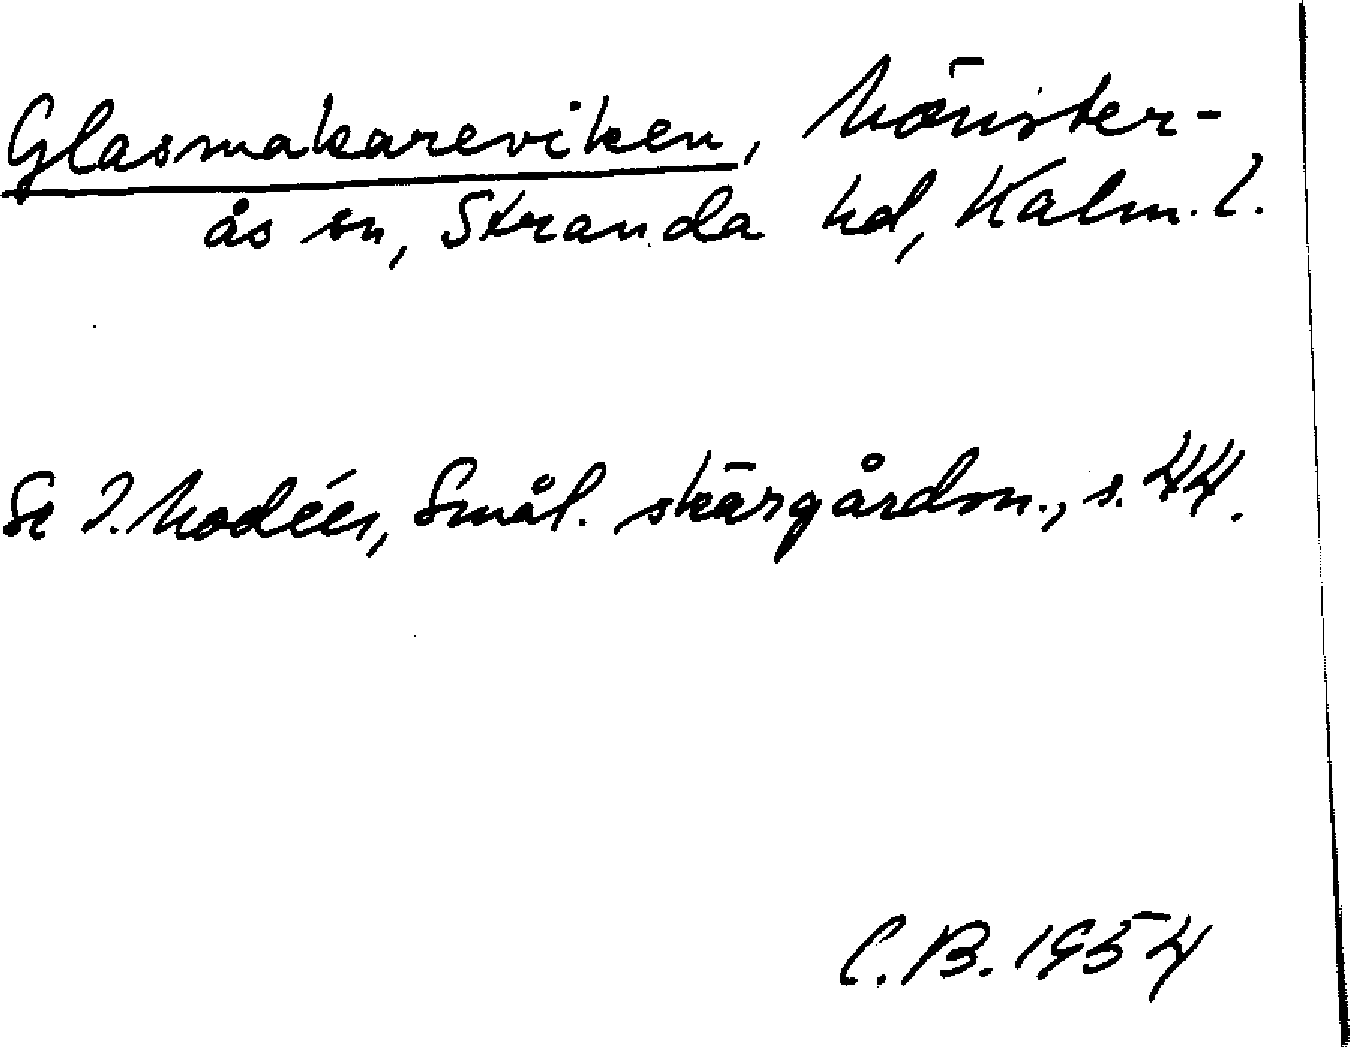 Glasmakareviken, Mönster-
ås sn, Stranda hd, Kalm. l.
Se I. Modéer, Smål. skärgårdsn., s. 44.
C.B. 1954